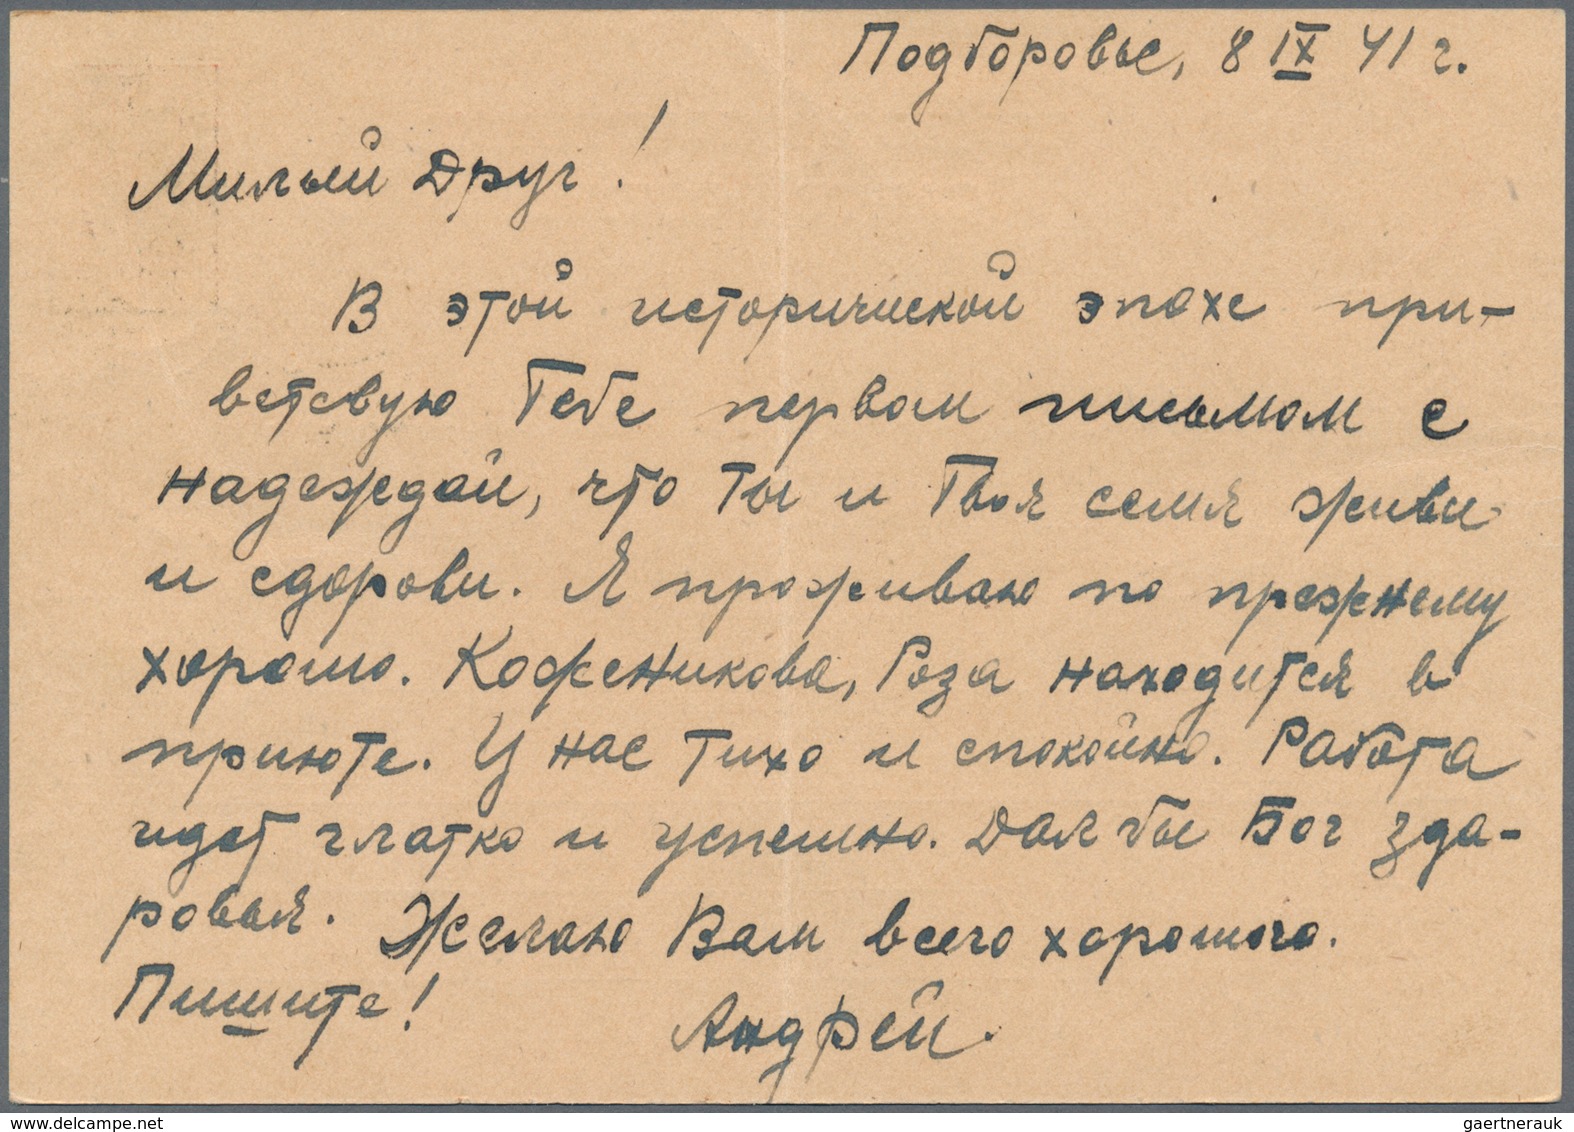 Подборовье, 8 IX 41 г.
Милый Друг!
В этой исторической эпохе при-
ветсвую Тебе первом письмом с
надеждой, что Ты и Твоя семя живи
и сдорови. Я проживаю по прежнему
хорошо. Кофеникова, Роза находится в
приюте. У нас тихо и спокойно. Работа
идет глатко и успешно. Дал бы Бог зда-
ровья. Желаю Вам всего хорошого.
Пишите!
Андрей.
delcampe.net
gaertnerauk